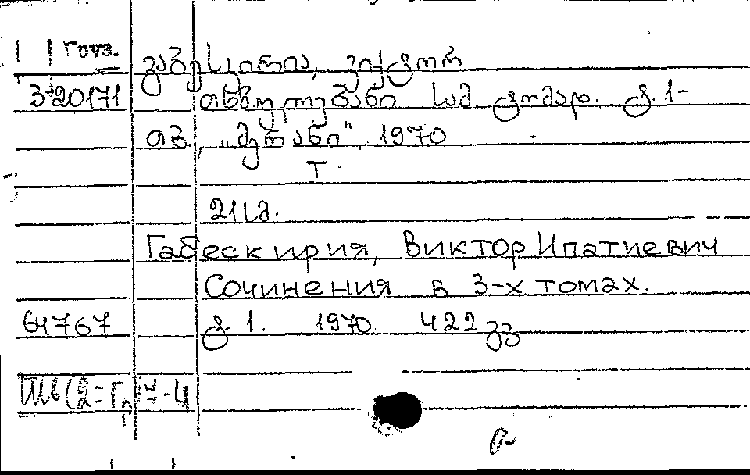 Груз. გაბესკირია, ვიქტორ
3-20171 თხზულებანი სამ ტომად. ტ.1-
თბ., „მერანი“, 1970
Т.
21სმ.
Габескирия, Виктор Ипатиевич
Сочинения в 3-х томах.
64767 ტ. 1. 1970. 422 გვ